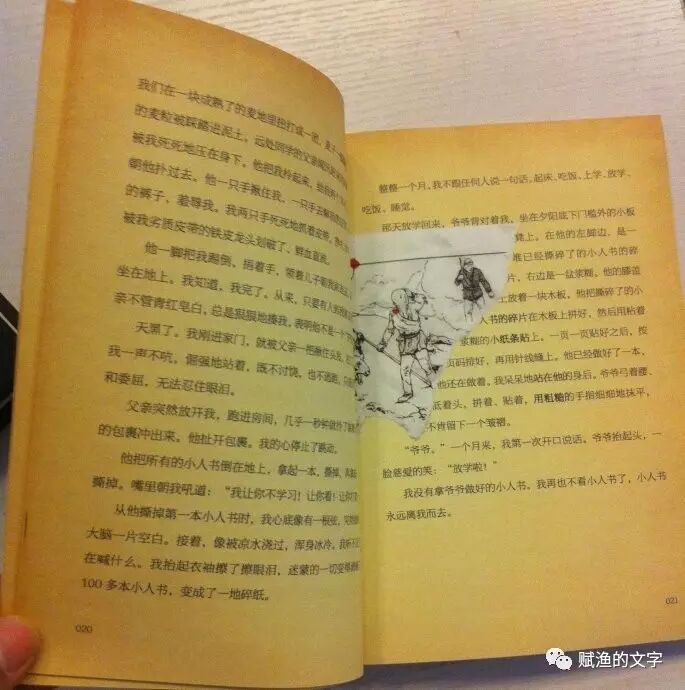 我们在一块成熟了的麦地里扭打成一团,
的麦粒被踩踏进泥土。远处同学的父亲
被我死死地压在身下。他把我拎起来,
朝他扑过去。他一只手揪住我,一只手去
的裤子,羞辱我。我两只手死死地抓着皮带,
被我劣质皮带的铁皮龙头划破了、鲜血直流
他一脚把我踢倒、捂着手,带着儿子
坐在地上。我知道,我完了。从来,只要有人
亲不管青红皂白,总是狠狠地揍我,表明他不是一个
天黑了。我刚进家门,就被父亲一把揪住头发,
我一声不吭,倔强地站着,既不讨饶,也不逃跑,
和委屈,无法忍住眼泪。
父亲突然放开我,跑进房间,几乎一秒钟就拎了
的包裹冲出来。他扯开包裹。我的心停止了跳动。
他把所有的小人书倒在地上,拿起一本,撕掉,再
撕掉。嘴里朝我吼道:“我让你不学习!让你看!让你
从他撕掉第一本小人书时,我心底像有一根弦,
大脑一片空白。接着、像被凉水浇过,浑身冰冷。我听不
在喊什么。我抬起衣袖擦了擦眼泪,迷蒙的一切变
100 多本小人书,变成了一地碎纸。
020
整整一个月,我不跟任何人说一句话。起床、吃饭、上学、放学、
吃饭、睡觉。
那天放学回来,爷爷背对着我,坐在夕阳底下门槛外的小板
凳上。在他的左脚边,是一
堆已经撕碎了的小人书的碎
片,右边是一盆浆糊。他的膝盖
上放着一块木板。他把撕碎了的小
人书的碎片在木板上拼好,然后用粘着
浆糊的小纸条贴上。一页一页贴好之后,按
页码排好,再用针线缝上。他已经做好了一本,
他还在做着。我呆呆地站在他的身后。爷爷弓着腰、
低着头、拼着、贴着,用粗糙的手指细细地抹平,
不肯留下一个皱褶。
“爷爷。”一个月来,我第一次开口说话。爷爷抬起头,一
脸慈爱的笑:“放学啦!”
我没有拿爷爷做好的小人书。我再也不看小人书了,小人书
永远离我而去。
021
赋渔的文字